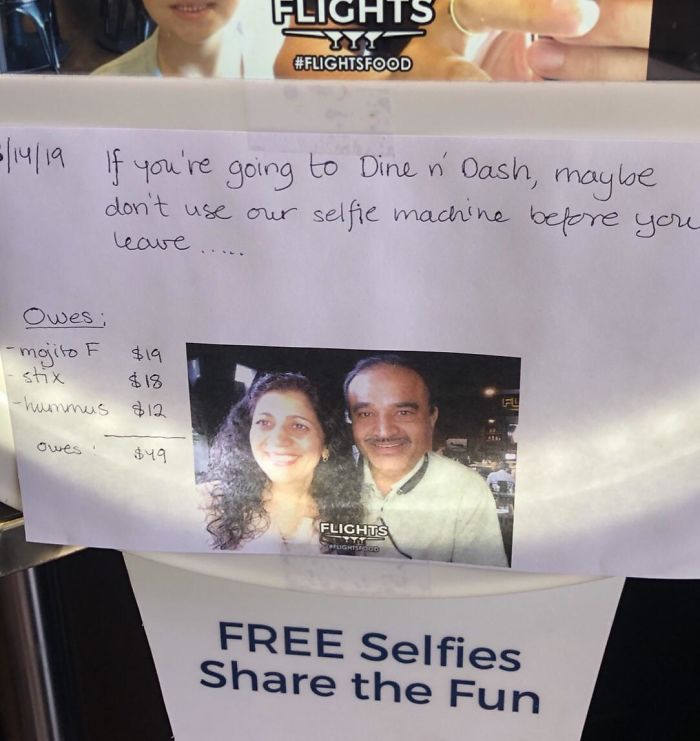 FLIGHTS
#FLIGHTSFOOD
/14/19 If you're going to Dine n' Dash, maybe
don't use our selfie machine before you
leave .....
Owes:
- mojito F $19
- stix $18
- hummus $12
owes: $49
FLIGHTS
#FLIGHTSFOOD
FL
FREE Selfies
Share the Fun